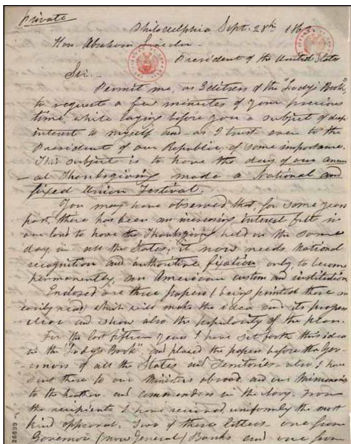 Private
Philadelphia Sept. 28th 1863.
Hon. Abraham Lincoln
President of the United States
Sir.
Permit me, as Editress of the "Lady's Book",
to request a few minutes of your precious
time, while laying before you a subject of deep
interest to myself and as I trust even to the
President of our Republic, of some importance.
This subject is to have the day of our annu-
-al Thanksgiving made a National and
fixed Union Festival.
You may have observed that, for some years
past, there has been an increasing interest felt in
our land to have the Thanksgiving held on the same
day, in all the States; it now needs National
recognition and authoritive fixation, only, to become
permanently, an American custom and institution.
Enclosed are three papers (being printed these are
easily read) which will make the idea and its progress
clear and show also the popularity of the plan.
For the last fifteen years I have set forth this idea
in the "Lady's Book", and placed the papers before the Gov-
ernors of all the States and Territories also I have
sent these to our Ministers abroad, and our Missionaries
to the heathen and commanders in the Navy. From
the recipients I have received, uniformly the most
kind approval. Two of these letters, one from
Governor (now General) Banks and one from